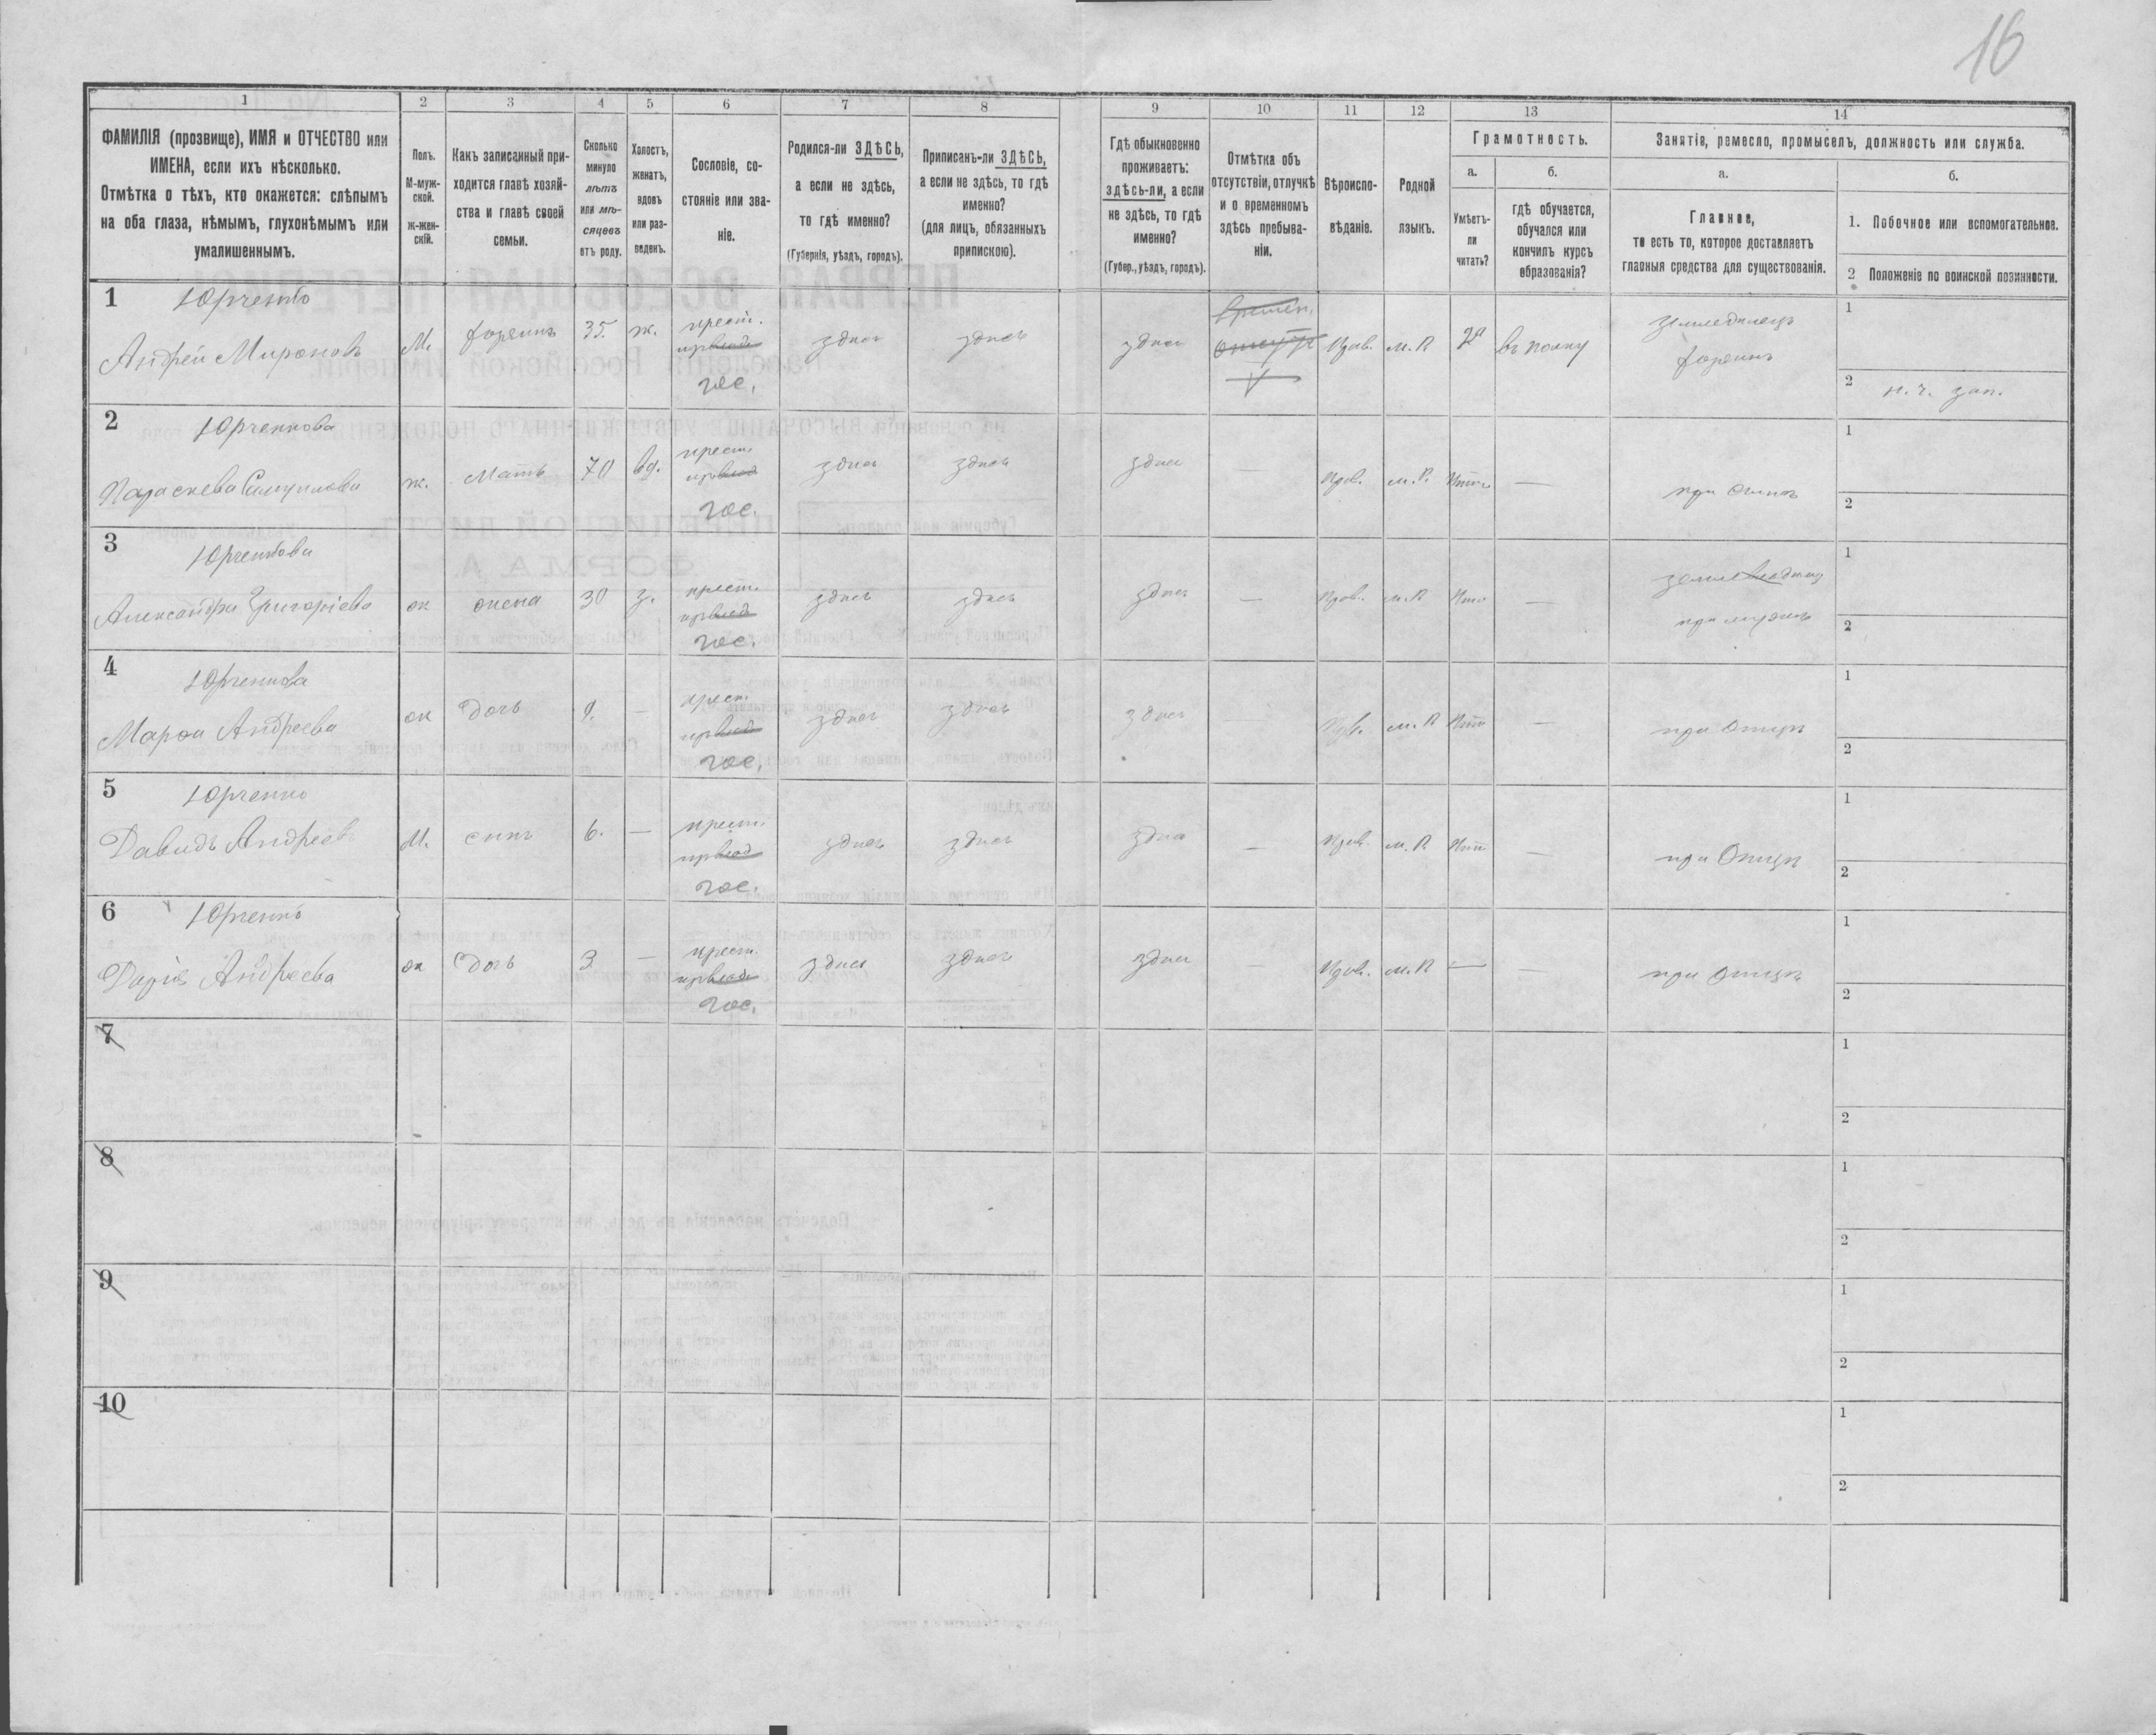 16
1
2
3
4
5
6
7
8
9
10
11
12
13
14
ФАМИЛІЯ (прозвище), ИМЯ и ОТЧЕСТВО или
ИМЕНА, если ихъ нѣсколько.
Отмѣтка о тѣхъ, кто окажется: слѣпымъ
на оба глаза, нѣмымъ, глухонѣмымъ или
умалишеннымъ.
Полъ.
М-муж-
ской.
ж-жен-
скій.
Какъ записанный при-
ходится главѣ хозяй-
ства и главѣ своей
семьи.
Сколько
минуло
лѣтъ
или мѣ-
сяцевъ
отъ роду.
Холостъ,
женатъ,
вдовъ
или раз-
веденъ.
Сословіе, со-
стояніе или зва-
ніе.
Родился-ли ЗДѢСЬ,
а если не здѣсь,
то гдѣ именно?
(Губернія, уѣздъ, городъ).
Приписанъ-ли ЗДѢСЬ,
а если не здѣсь, то гдѣ
именно?
(для лицъ, обязанныхъ
припискою).
Гдѣ обыкновенно
проживаетъ:
здѣсь-ли, а если
не здѣсь, то гдѣ
именно?
(Губер., уѣздъ, городъ).
Отмѣтка объ
отсутствіи, отлучкѣ
и о временномъ
здѣсь пребыва-
ніи.
Вѣроиспо-
вѣданіе.
Родной
языкъ.
Грамотность.
а.
Умѣетъ-
ли
читать?
б.
гдѣ обучается,
обучался или
кончилъ курсъ
образованія?
Занятіе, ремесло, промыселъ, должность или служба.
а.
Главное,
то есть то, которое доставляетъ
главныя средства для существованія.
б.
1. Побочное или вспомогательное.
2 Положеніе по воинской повинности.
1 Юрченко
Андрей Мироновъ
М. хозяинъ 35. ж. крест.
гос.
здѣсь здѣсь здѣсь
Прав. м. Р. да въ полку
земледѣлецъ
хозяинъ
1
2 н. ч. зап.
2 Юрченкова
Параскева Самуилова
ж. мать 70 вд. крест.
гос.
здѣсь здѣсь здѣсь — Прав. м. Р. нѣтъ —
при сынѣ
1
2
3 Юрченкова
Александра Григорьева
ж жена 30 з. крест.
гос.
здѣсь здѣсь здѣсь — Прав. м. Р нѣтъ —
при мужѣ
1
2
4 Юрченкова
Марѳа Андреева
ж дочь 9. — крест.
гос.
здѣсь здѣсь здѣсь — Прав. м. Р нѣтъ —
при отцѣ
1
2
5 Юрченко
Давидъ Андреевъ
М. сынъ 6. — крест.
гос.
здѣсь здѣсь здѣсь — Прав. м. Р нѣтъ —
при отцѣ
1
2
6 Юрченко
Дарія Андреева
ж дочь 3 — крест.
гос.
здѣсь здѣсь здѣсь — Прав. м. Р — —
при отцѣ
1
2
7
1
2
8
1
2
9
1
2
10
1
2